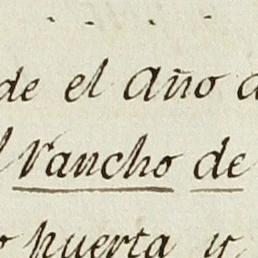 de el Año d
l rancho de
o puerta y